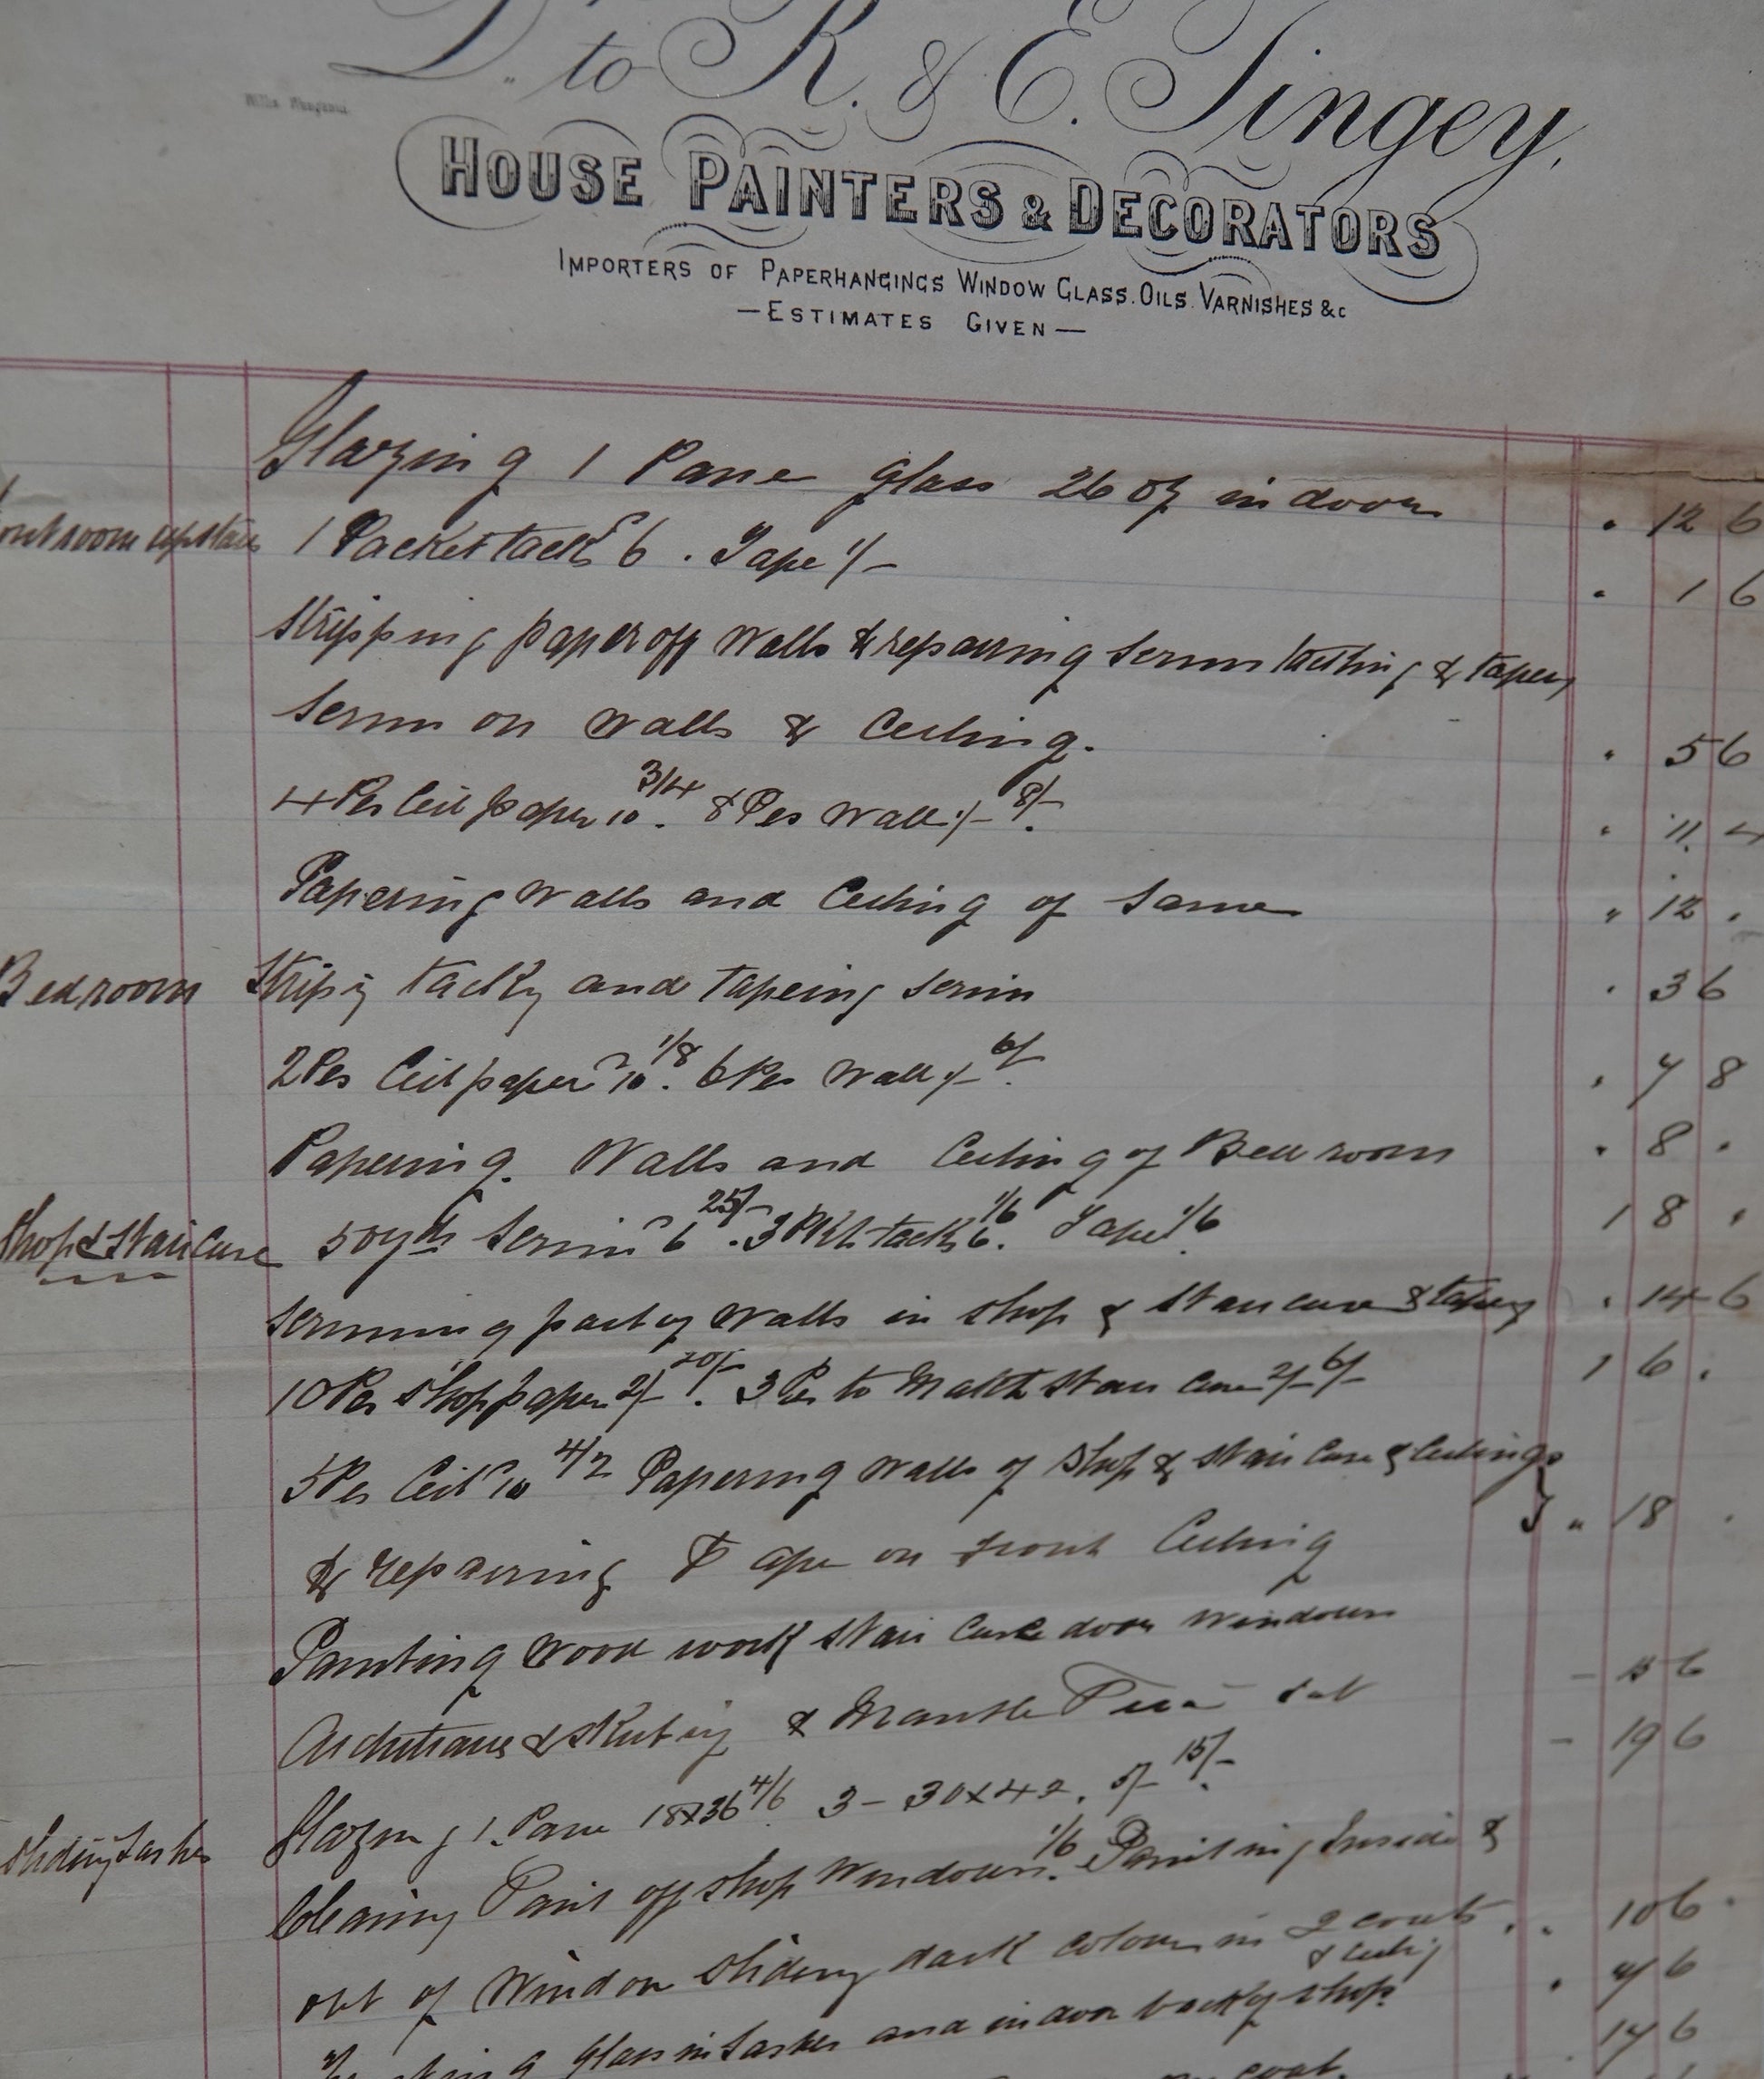 Dr. to R. & E. Tingey,
HOUSE PAINTERS & DECORATORS
IMPORTERS OF PAPERHANGINGS WINDOW GLASS. OILS. VARNISHES &c
—ESTIMATES GIVEN—
Glazing 1 Pane glass 26 oz in door " 12 6
ont room upstairs 1 Packet tacks 6 . Tape 1/- " 1 6
Stripping paper off Walls & repairing Scrim tacking & taping
Scrim on Walls & Ceiling. " 5 6
4 Pes Ceil paper 10 3/4 . 8 Pes Wall 1/- 8/- " 11. 4
Papering Walls and Ceiling of Same " 12 .
Bedroom Strip'g tack'g and tapeing Scrim " 3 6
2 Pes Ceil paper 10 1/8 . 6 Pes Wall 1/- 6/- " 7 8
Papering. Walls and Ceiling of Bedroom " 8 "
Shop & Staircase 50 yds Scrim 6 25/- . 3 Pkts tacks 6 1/6 . Tape 1/6 1 8 "
Scrimming part of Walls in Shop & Staircase & taping " 14 6
10 Pes Shop paper 2/- 20/- . 3 Pes to Match Stair Case 2/- 6/- 1 6 .
5 Pes Ceil 10 4/2 Papering Walls of Shop & Stair Case & Ceilings
& repairing Tape on front Ceiling " 18 .
Painting Wood work Stair Case door Windows
Architraves & Skirting & Mantle Piece - 15 6
Glazing 1. Pane 18x36 4/6 3 - 30x42. 5/- 15/- - 19 6
Sliding Sashes Cleaning Paint off Shop Windows. 1/6 Painting Inside &
out of Window Sliding dark colour in 2 coats " 10 6
& Ceiling
glass in Sashes and in door back of Shop. " 4 6
17 6
coat.